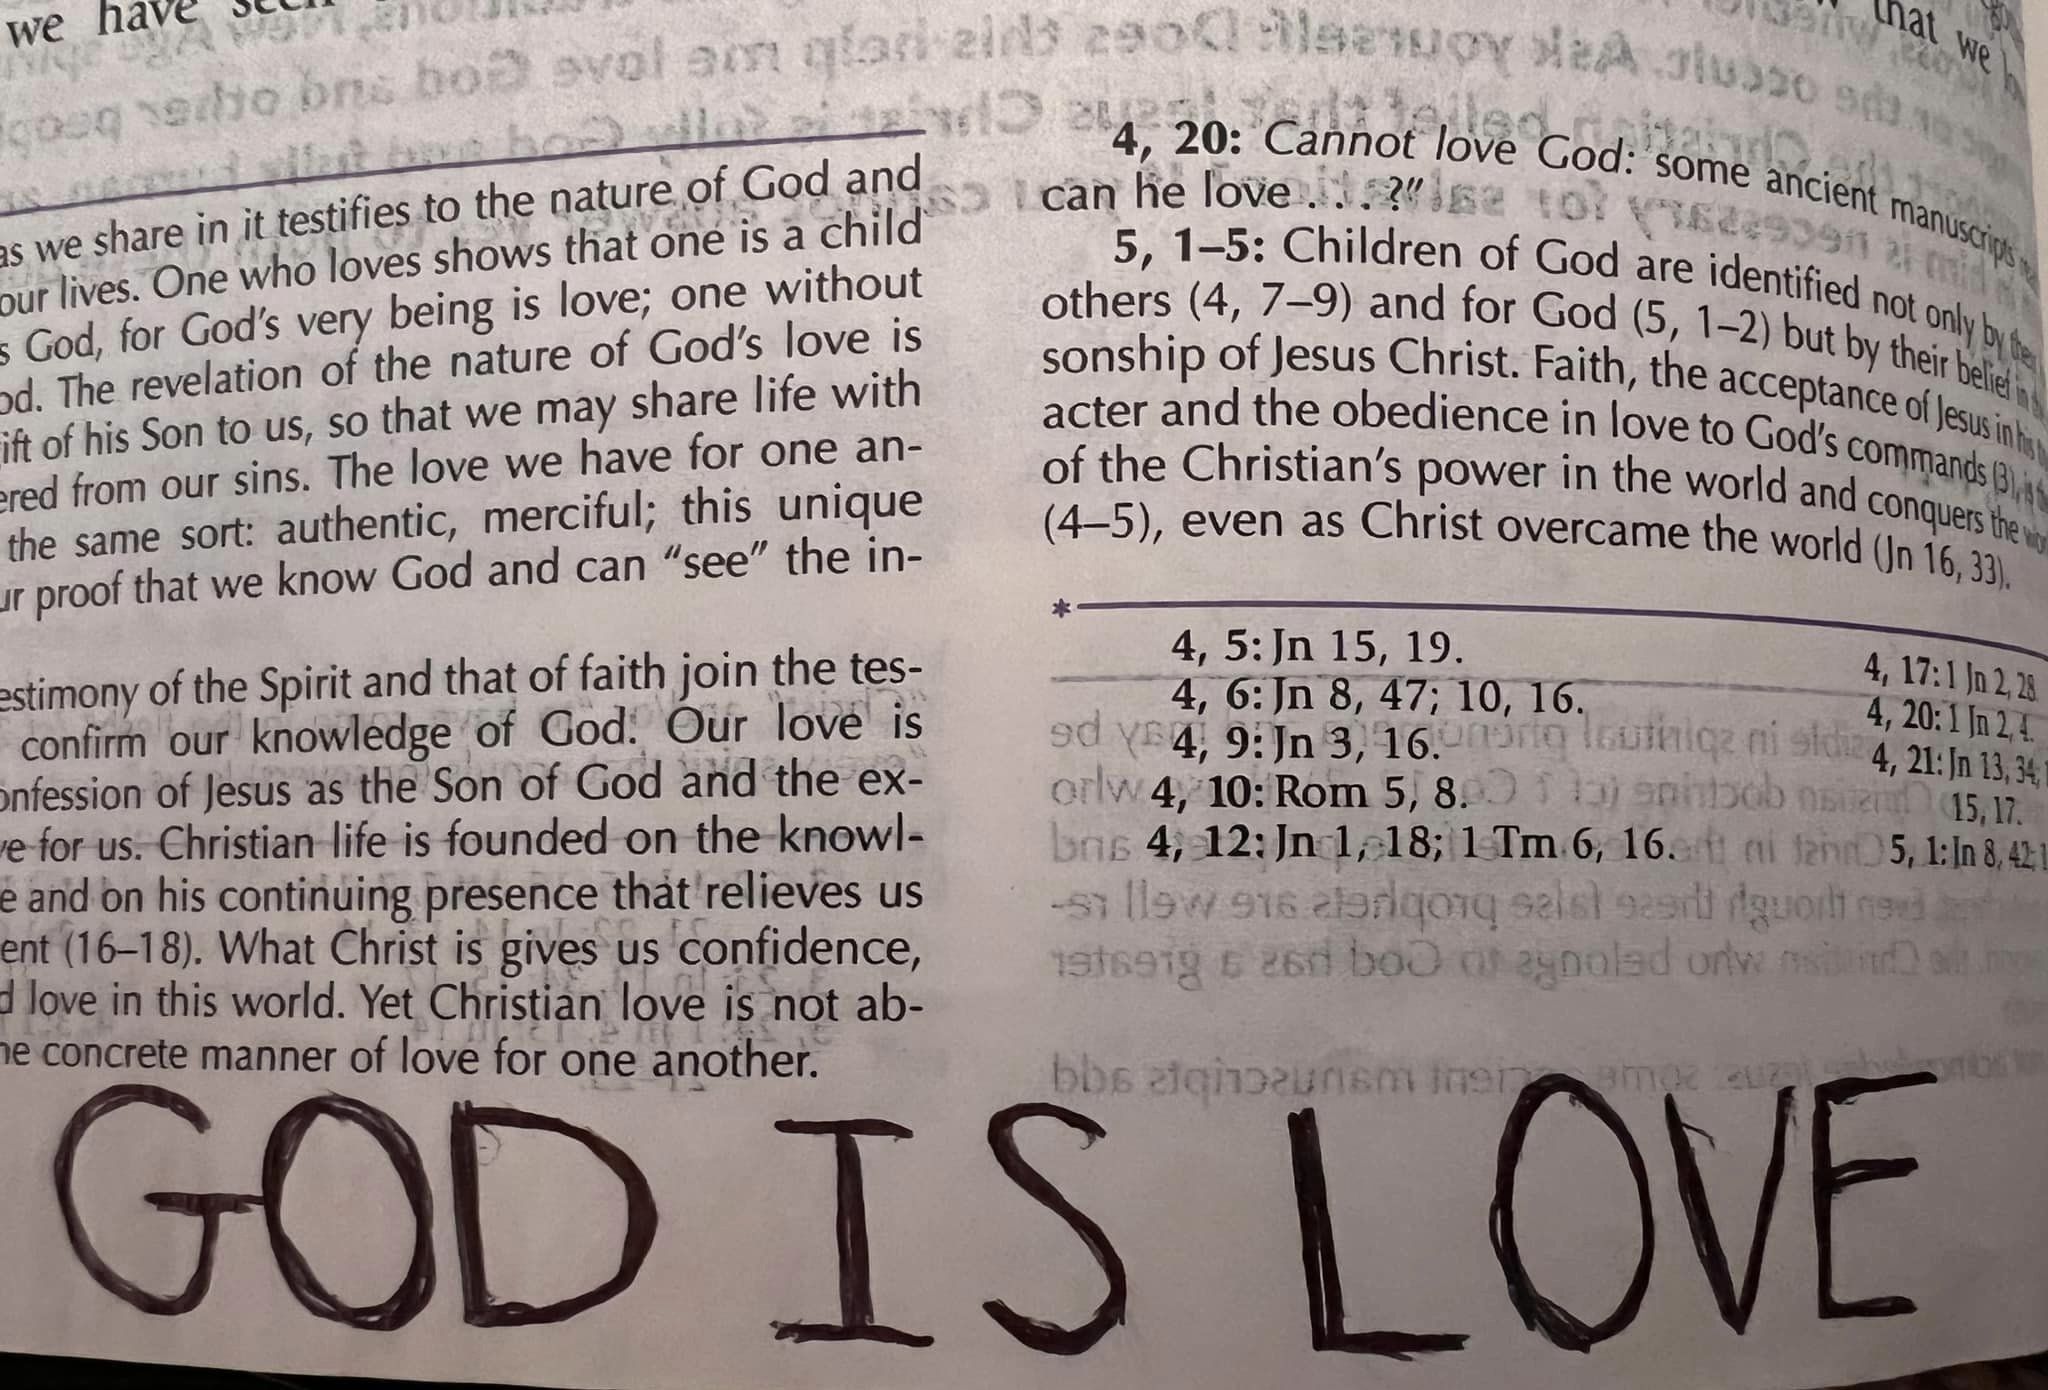 we have seen
that we
as we share in it testifies to the nature of God and
our lives. One who loves shows that one is a child
s God, for God's very being is love; one without
od. The revelation of the nature of God's love is
ift of his Son to us, so that we may share life with
ered from our sins. The love we have for one an-
the same sort: authentic, merciful; this unique
ur proof that we know God and can "see" the in-
estimony of the Spirit and that of faith join the tes-
confirm our knowledge of God. Our love is
onfession of Jesus as the Son of God and the ex-
ve for us. Christian life is founded on the knowl-
e and on his continuing presence that relieves us
ent (16–18). What Christ is gives us confidence,
d love in this world. Yet Christian love is not ab-
he concrete manner of love for one another.
4, 20: Cannot love God: some ancient manuscripts
can he love . . . ?"
5, 1–5: Children of God are identified not only by their
others (4, 7–9) and for God (5, 1–2) but by their belief in the
sonship of Jesus Christ. Faith, the acceptance of Jesus in his
acter and the obedience in love to God's commands (3), is the
of the Christian's power in the world and conquers the
(4–5), even as Christ overcame the world (Jn 16, 33).
*
4, 5: Jn 15, 19.
4, 6: Jn 8, 47; 10, 16.
4, 9: Jn 3, 16.
4, 10: Rom 5, 8.
4, 12: Jn 1, 18; 1 Tm 6, 16.
4, 17: 1 Jn 2, 28
4, 20: 1 Jn 2, 4.
4, 21: Jn 13, 34;
15, 17.
5, 1: Jn 8, 42;
GOD IS LOVE